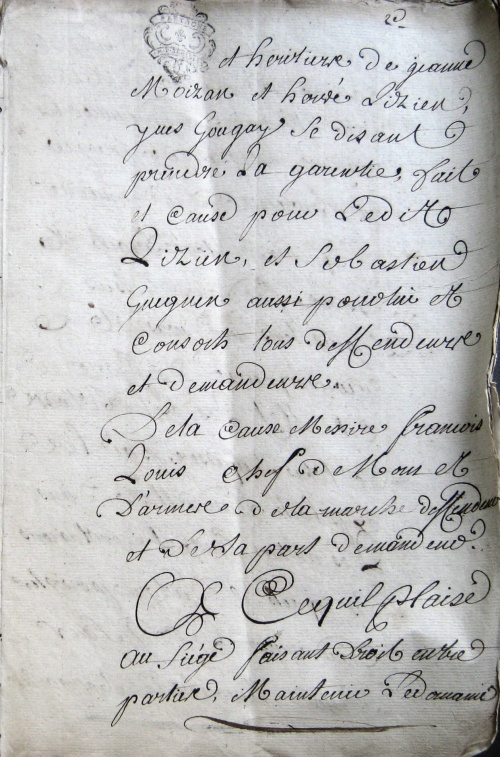 2e
et heritiere de jeanne
Moizan et hervé Lizien,
yves Gougay se disant
prendre la garentie, fait
et cause pour Ledit
Lizien, et Sebastien
Gueguen aussi pour lui et
Consorts tous deffendeurs
et demandeurs.
De la cause Messire françois
Louis chef de Nom et
D'armes de la marche deffendeur
et De sa part demandeur.
Ce quil plaise
au siége faisant Droit entre
parties, Maintenir Le